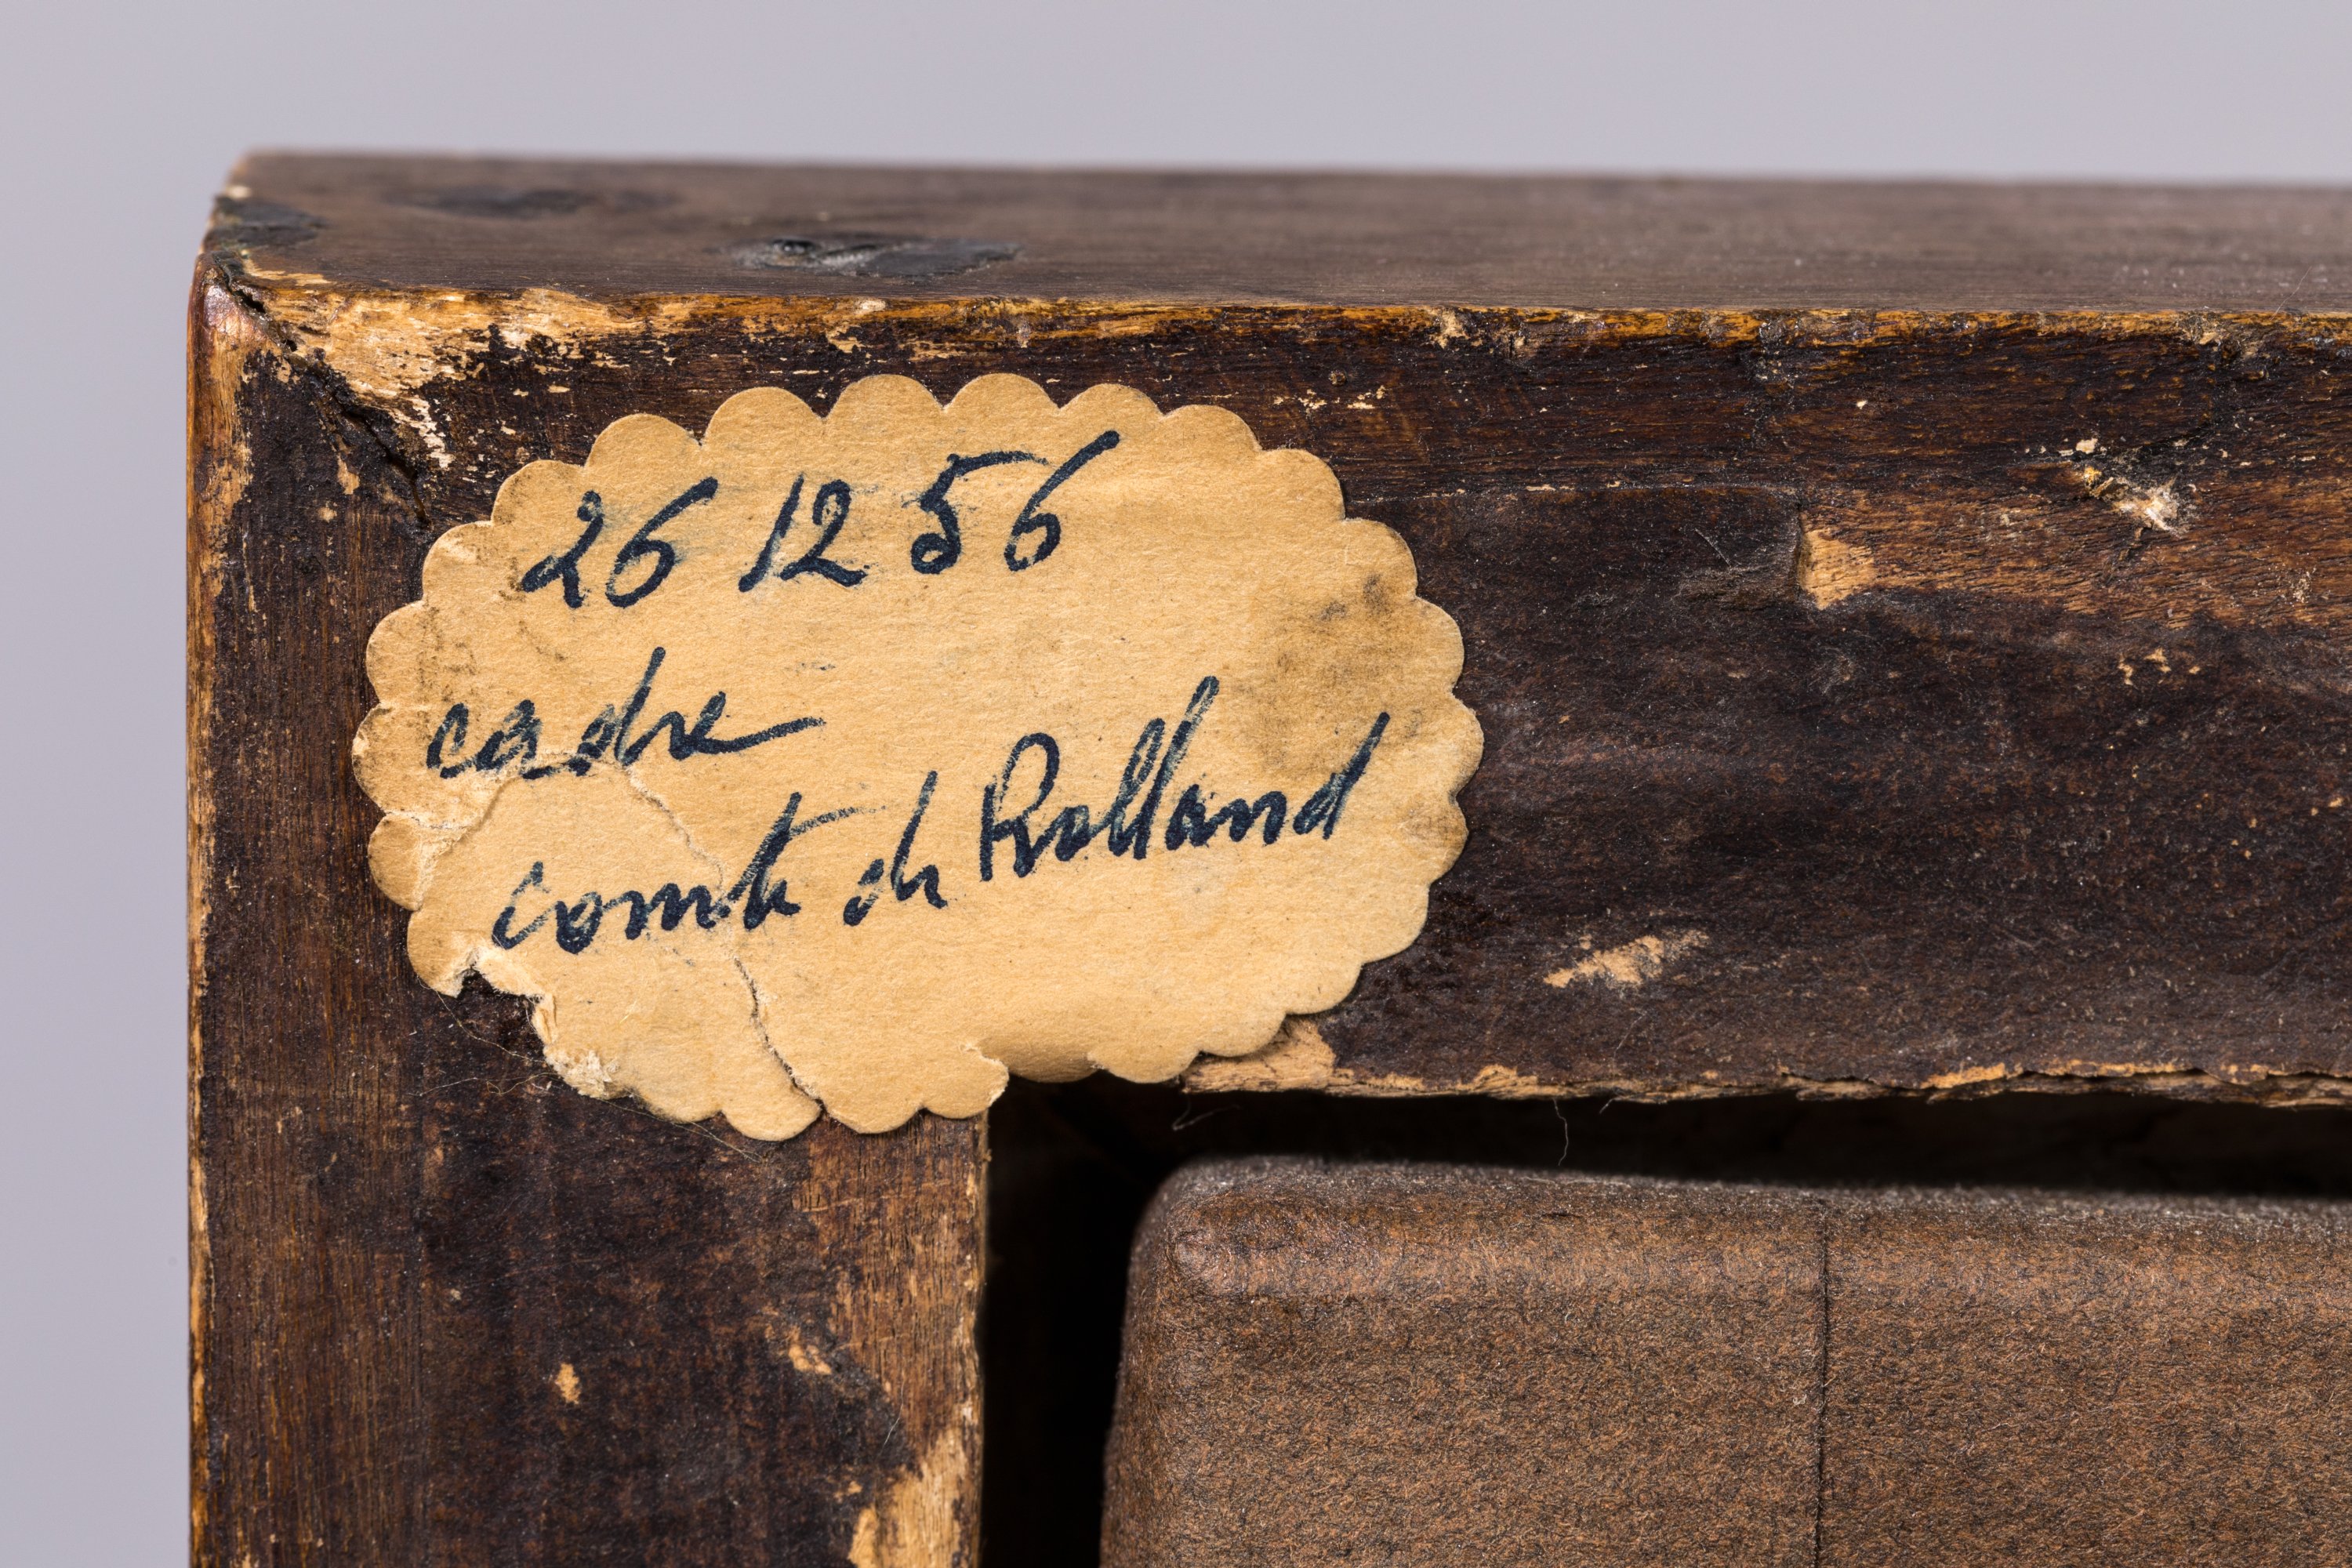 26 12 56
cadre
comte de Rolland